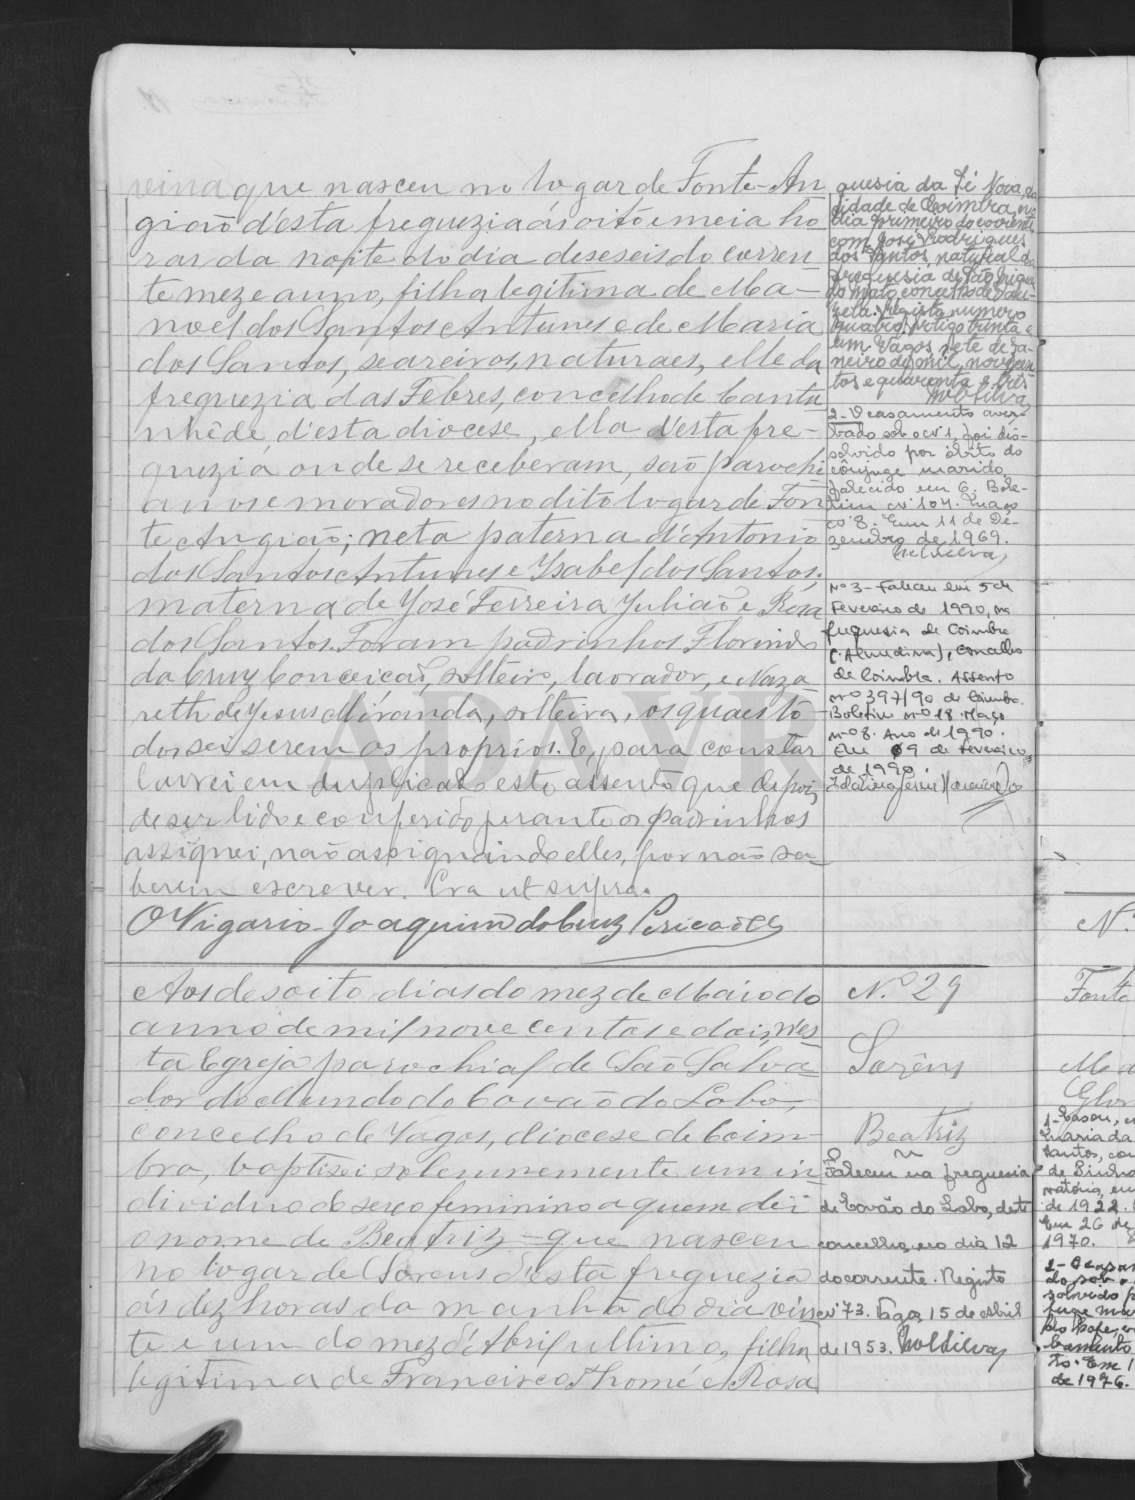 que nasceu no logar de Fonte-An
gião d'esta freguezia ás oito e meia ho
ras da noite do dia deseseis do corren
te mez e anno, filha legitima de Ma-
noel dos Santos Antunes e de Maria
dos Santos, seareiros, naturaes, elle da
freguezia das Febres, concelho de Canta
nhêde d'esta diocese, ella d'esta fre-
guezia onde se receberam, são parochi
anos e moradores no dito logar de Fon
te Angião; neta paterna d'Antonio
dos Santos Antunes e Isabel dos Santos;
materna de José Ferreira Julião e Rosa
dos Santos. Foram padrinhos Florindo
da Cruz Conceição, solteiro, lavrador, e Naza
reth de Jesus Miranda, solteira, os quaes tó
dos sei serem os proprios. E, para constar
lavrei em duplicado este assento que depois
de ser lido e conferido perante os padrinhos
assignei, não assignando elles, por não sa
berem escrever. Era ut supra.
O Vigario Joaquim da Cruz Pericão
guesia da Sé Nova, da
cidade de Coimbra, no
dia primeiro do corrente
com José Rodrigues
dos Santos, natural da
freguesia de São Miguel
do Mato, concelho de Vou-
zela. Registo numero
quatro. Artigo trinta e
um. Vagos, sete de Ja-
neiro de mil, novecen
tos e quarenta e três
2-O casamento aver-
bado sob o nº 1, foi dis-
solvido por óbito do
cônjuge marido,
falecido em 6. Bole-
tim nº 104. Maço
nº 8. Em 11 de De-
zembro de 1969.
Nº 3 - Faleceu em 5 de
Fevereiro de 1990, na
freguesia de Coimbra
(Almedina), concelho
de Coimbra. Assento
nº 397/90 de Coimbra.
Boletim nº 18. Maço
nº 8. Ano de 1990.
Em 09 de Fevereiro
de 1990.
Aos desoito dias do mez de Maio do
anno de mil nove centos e dois, n'es
ta Egreja parochial de São Salva
dor do Mundo do Covão do Lobo,
concelho de Vagos, diocese de Coim-
bra, baptisei solemnemente um in
dividuo do sexo feminino a quem dei
o nome de Beatriz - que nasceu
no logar de Sorens d'esta freguezia
ás dez horas da manhã do dia vin
te e um do mez d'Abril ultimo, filha
legitima de Francisco Thomé e Rosa
N.º 29
Sorêns
Beatriz
Faleceu na freguesia
de Covão do Lobo, deste
concelho, no dia 12
do corrente. Registo
nº 73. Vagos, 15 de Abril
de 1953.
N.º
Fonte
1-Casou,
Maria da
Santos, com
de 1922.
Em 26 de
1970.
2-O casam
do sob o
solvido p
de 1976.
ADAVR